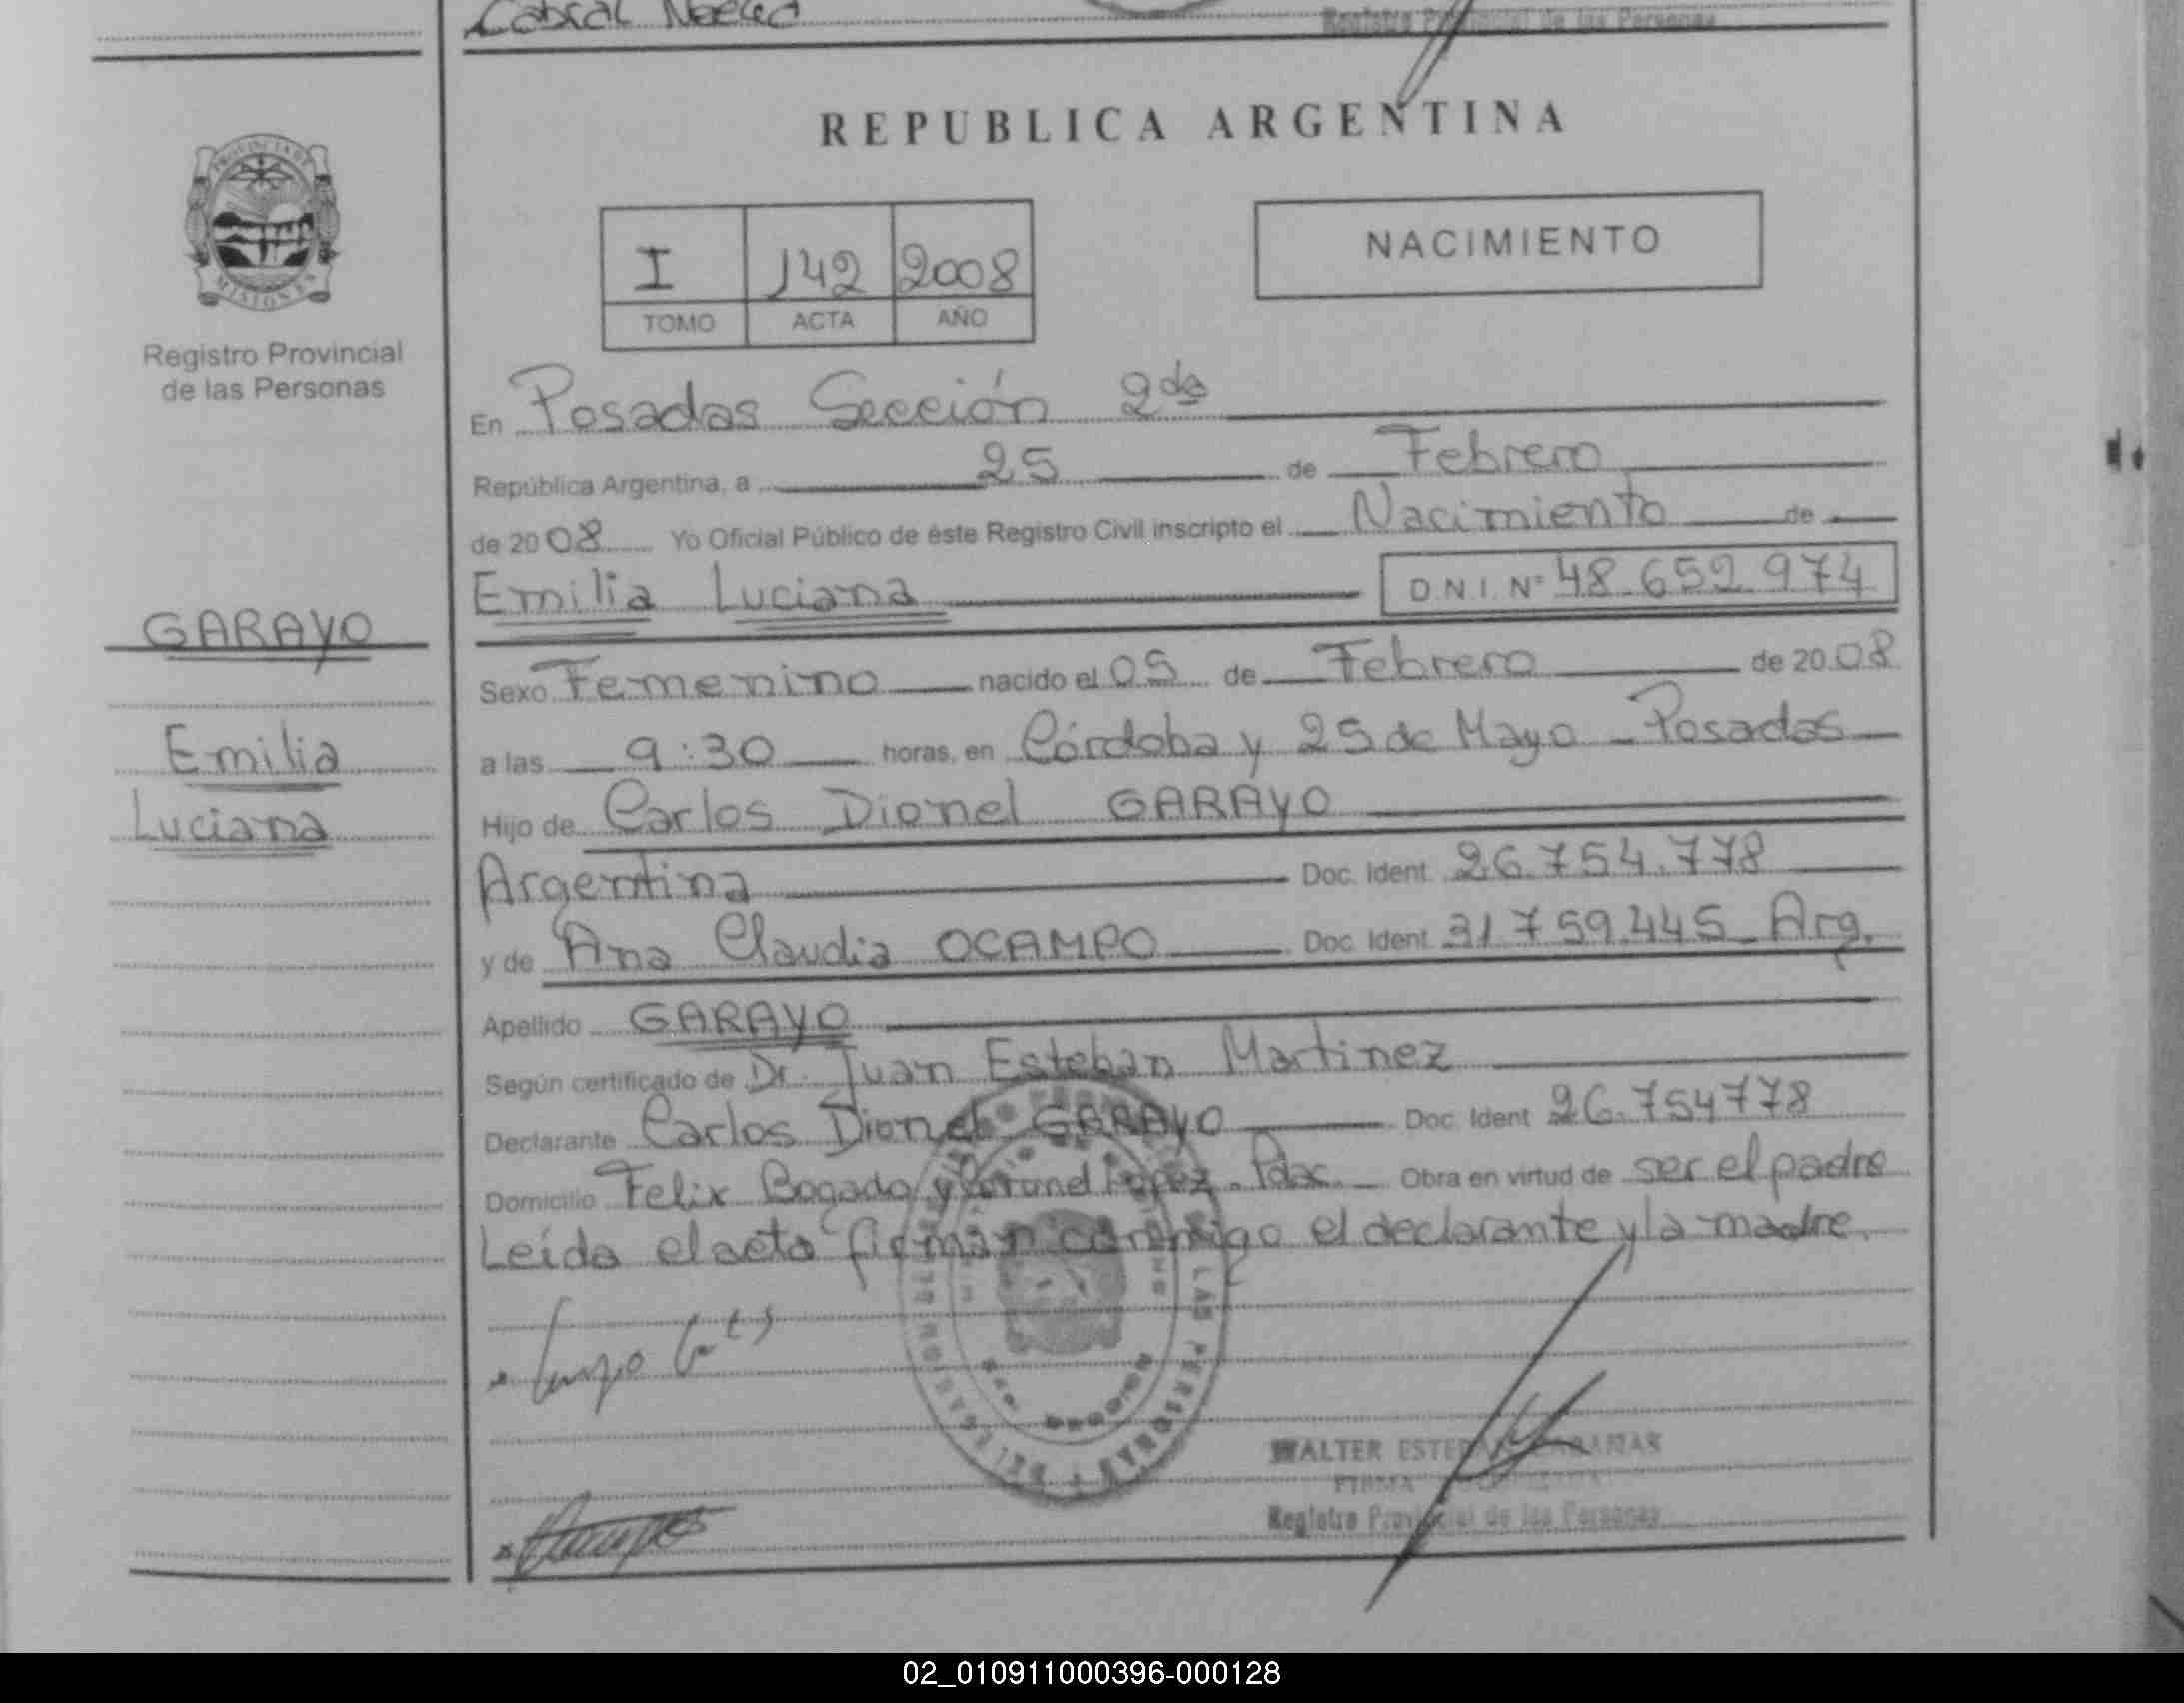 Cabral Noelia
Registro Provincial de las Personas
REPUBLICA ARGENTINA
PROVINCIA DE
MISIONES
Registro Provincial
de las Personas
I 142 2008
TOMO ACTA AÑO
NACIMIENTO
En Posadas Sección 2da
República Argentina, a 25 de Febrero
de 2008 Yo Oficial Público de éste Registro Civil inscripto el Nacimiento de
Emilia Luciana D.N.I. Nº 48.652.974
GARAYO
Emilia
Luciana
Sexo Femenino nacido el 05 de Febrero de 2008
a las 9:30 horas, en Córdoba y 25 de Mayo - Posadas
Hijo de Carlos Dionel GARAYO
Argentina Doc. Ident. 26.754.778
y de Ana Claudia OCAMPO Doc. Ident 31759.445_ Arg.
Apellido GARAYO
Según certificado de Dr. Juan Esteban Martinez
Declarante Carlos Dionel GARAYO Doc. Ident 26.754778
Domicilio Felix Bogado y Coronel Lopez - Pdas. Obra en virtud de ser el padre
Leída el acta firman conmigo el declarante y la madre.
LAS PERSONAS
WALTER ESTEBAN
FIRMA
Registro Provincial de las Personas
02_010911000396-000128